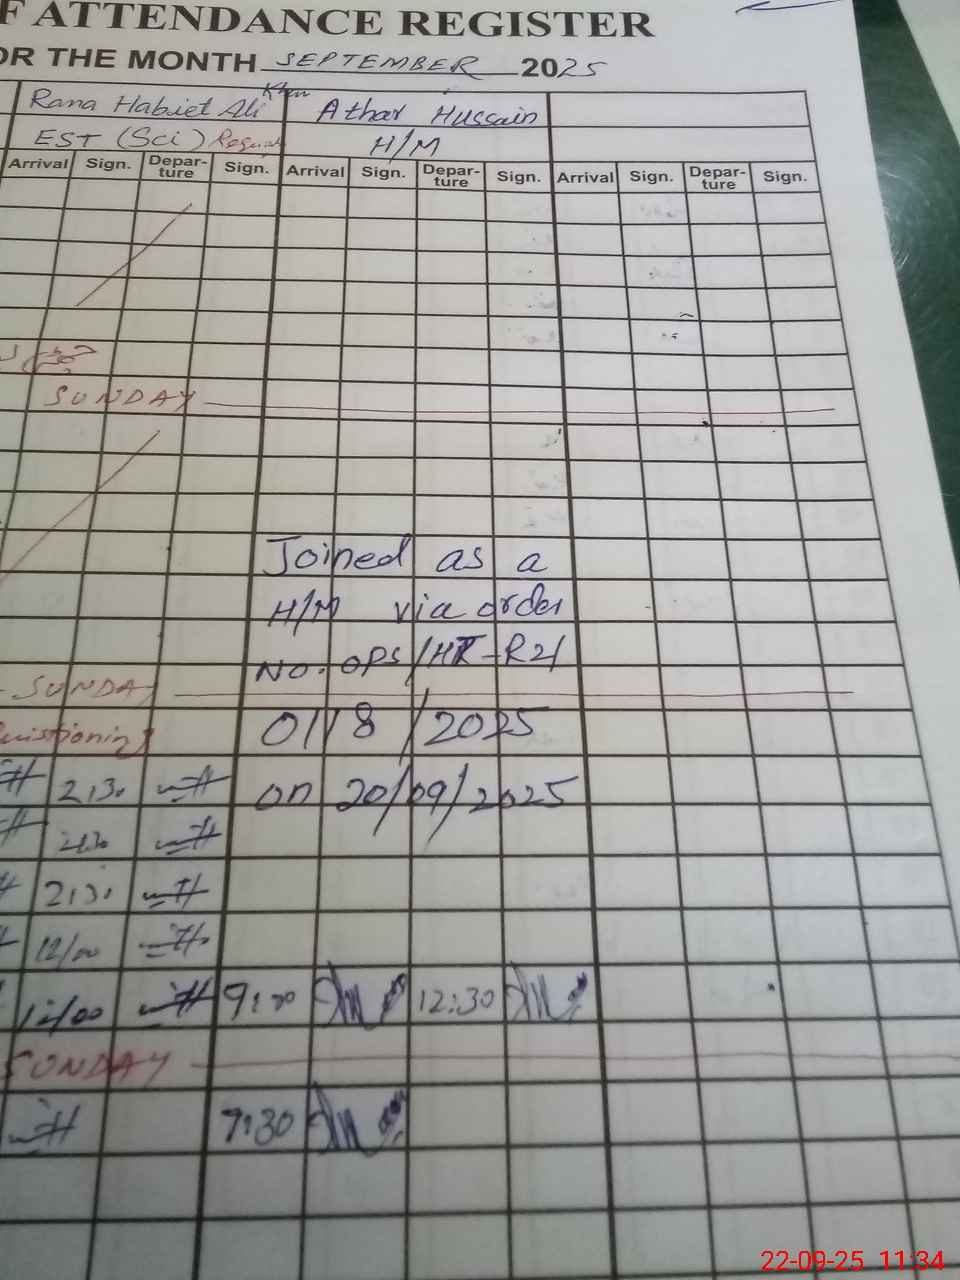 F ATTENDANCE REGISTER
OR THE MONTH SEPTEMBER 2025
Rana Habiet Ali Khan Athar Hussain
EST (Sci) Regular H/M
Arrival Sign. Depar-ture Sign. Arrival Sign. Depar-ture Sign. Arrival Sign. Depar-ture Sign.
SUNDAY
Joined as a
H/M via order
No. OPS/ -R21
SUNDAY
0118/2025
2:30 on 20/09/2025
2:30
2:30
12/00
12/00 9:30 12:30
SUNDAY
9:30
22-09-25 11:34